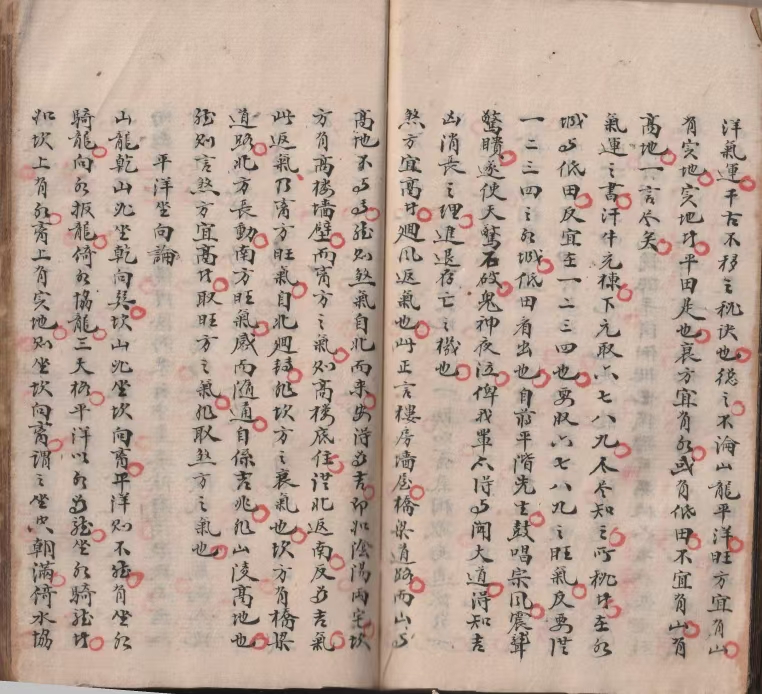 洋氣運千古不移之秘訣也總之不論山龍平洋旺方宜有山
有实地实地者平田是也衰方宜有水或有低田不宜有山有
高地一言尽矣
氣運之書汗牛充棟下元取六七八九人尽知之所秘者在水
城与低田反宜在一二三四也要收六七八九之旺氣反要從
一二三四之水城低田看出也自蔣平階先生鼓唱宗風震聾
驚聵遂使天驚石破鬼神夜泣俾我輩亦得与聞大道得知吉
凶消長之理進退存亡之機也
煞方宜高者迴風返氣也此正言樓房墻屋橋梁道路而山与
高地不与焉则煞氣自北而来安得为吉即如陰陽宅坎
方有高樓墻壁而离方之氣则高樓底住從北返南反为吉氣
此返氣乃离方旺氣自北迴轉非坎方之衰氣也坎方有橋梁
道路北方長動南方旺氣感而随通自係吉兆非山陵高地也
则言煞方宜高者取旺方之氣非取煞方之氣也
平洋坐向論
山龍乾山必坐乾向巽坎山必坐坎向离平洋则不有坐水
騎龍向水扳龍倚水協龍三大格平洋以水为龍坐水騎龍者
如坎上有水离上有实地则坐坎向离謂之坐朝滿倚水協